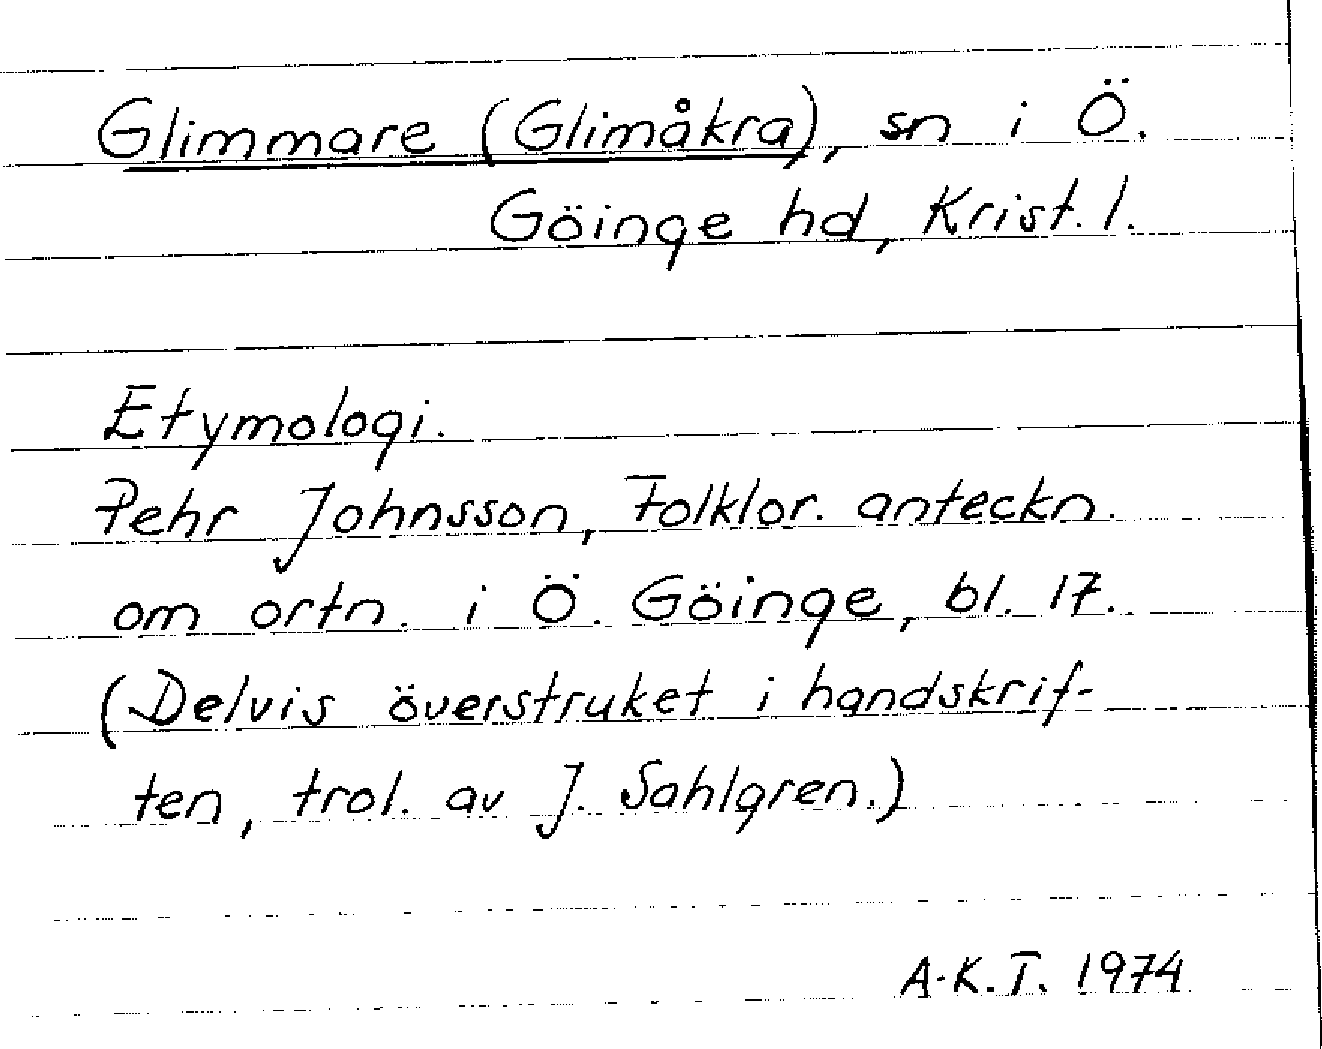 Glimmare (Glimåkra), sn i Ö.
Göinge hd, Krist. l.
Etymologi.
Pehr Johnsson, Folklor. anteckn.
om ortn. i Ö. Göinge, bl. 17.
(Delvis överstruket i handskrif-
ten, trol. av J. Sahlgren.)
A-K.T. 1974